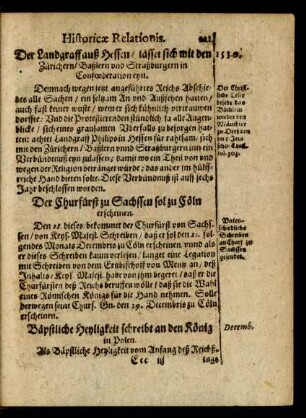 Historicæ Relationis. 221
Der Landgraff auß Hessen / lässet sich mit den 1530.
Zürichern / Baßlern und Straßburgern in
Confœderation eyn.
Demnach wegen jetzt angeführtes Reichs Abschie-
des alle Sachen / ein seltzam An und Außsehen hatten /
auch fast keiner wuste / wem er sich kühnlich vertrauwen
dorffte: Und die Protestierenden stündlich ja alle Angen-
blicke / sich eines grausamen Uberfalls zu besorgen hat-
ten: achtet Landgraff Philips in Hessen für rahtsam / sich
mit den Zürichern / Baßlern unnd Straßburgern inn ein
Verbündnuß eyn zulassen / damit wo ein Theil von inen /
wegen der Religion betränget würde / das ander im hülff-
reiche Hand bieten solte. Diese Verbündnuß ist auff sechs
Jahr beschlossen worden.
Der Christ-
liche Leser
besehe das
Büchlein
wieder den
zu Dreßden
Der Churfürst zu Sachssen sol zu Cöln
erscheinen.
Den 21. dieses bekommet der Churfürst von Sachs-
sen / von Keys. Majest. Schreiben / daß er solden 21. fol-
gendes Monats Decembris zu Cöln erscheinen / unnd als
er dieses Schreiben kaum verlesen / langet eine Legation
mit Schreiben von dem Ertzbischoff von Mentz an / deß
Inhalts / Keys. Majest. habe von ihm begeret / daß er die
Churfürsten deß Reichs beruffen wolte / daß sie die Wahl
eines Römischen Königs für die Hand nehmen. Solle
derwegen seine Churf. Gn. den 29. Decembris zu Cöln
erscheinen.
Unter-
schiedliche
Schreiben
an Churf. zu
Sachssen
gesendet.
Bäpstliche Heyligkeit schreibt an den König
in Polen.
Decemb.
Als Bäpstliche Heyligkeit vom Anfang deß Reichß-
Eee iij tags